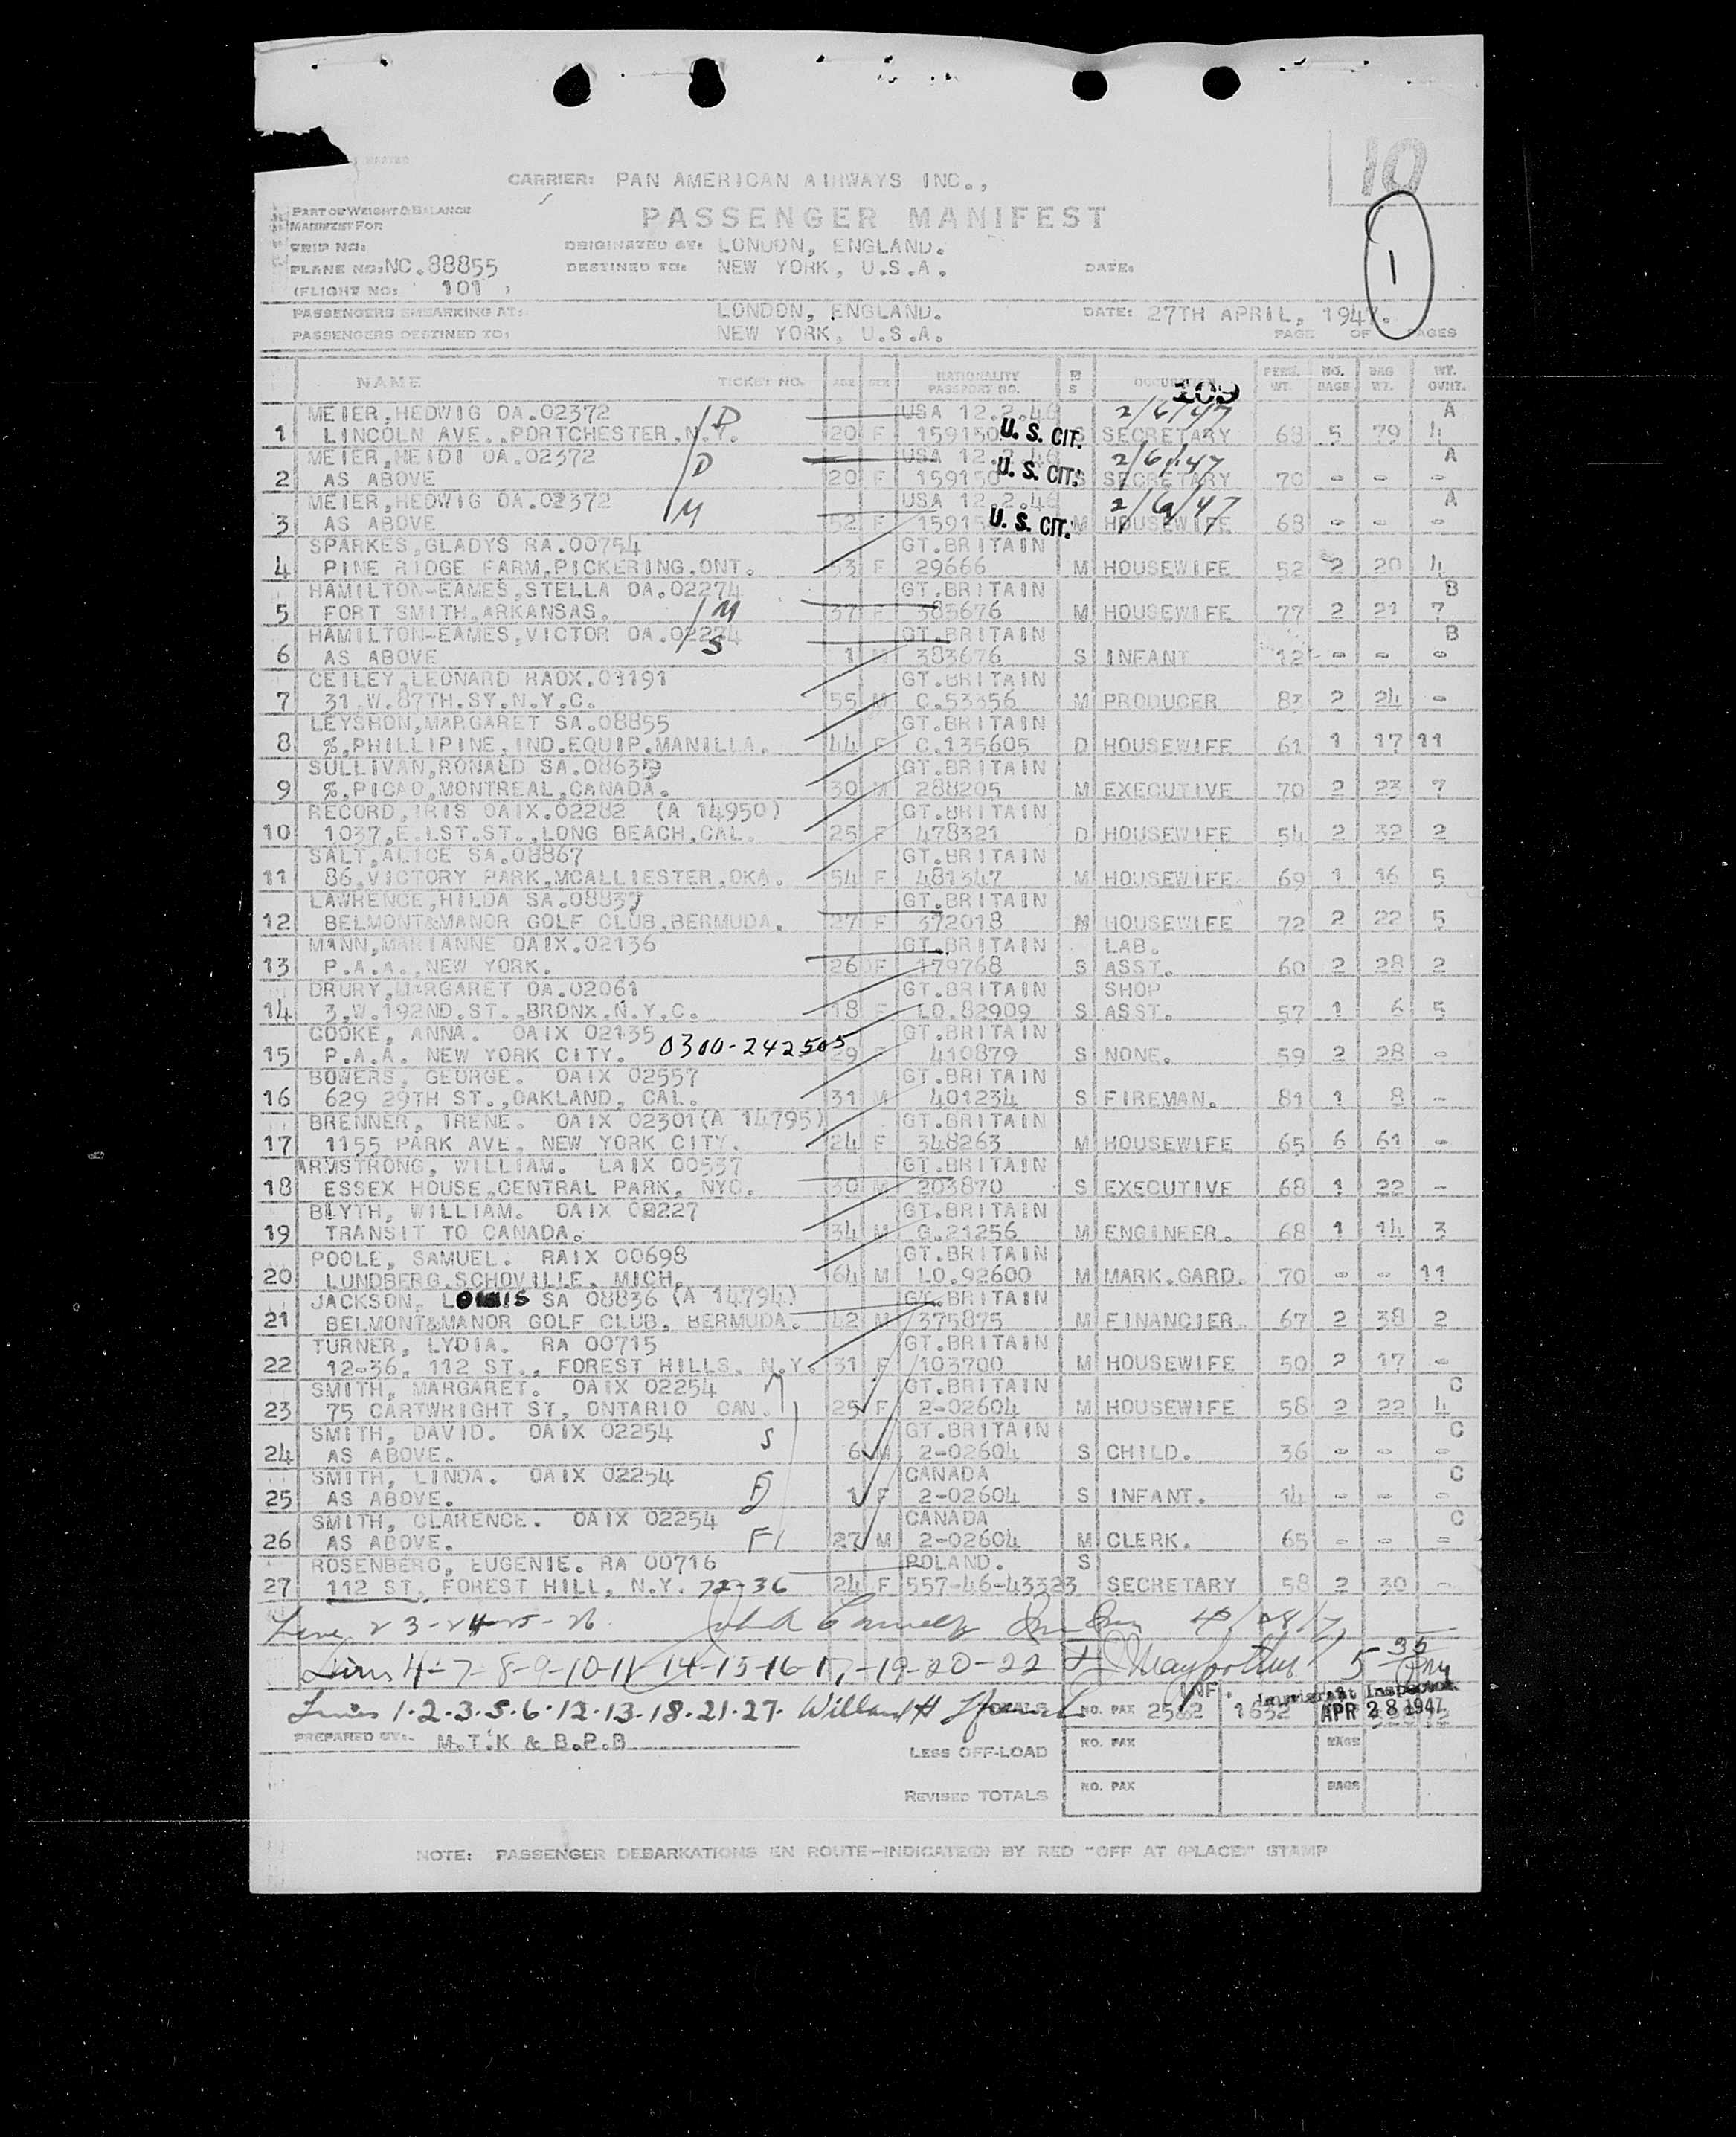 10
CARRIER: PAN AMERICAN AIRWAYS INC.,
PART OF WEIGHT & BALANCE
MANIFEST FOR
PASSENGER MANIFEST
1
TRIP NO:
ORIGINATED AT: LONDON, ENGLAND.
PLANE NO: NC.88855
DESTINED TO: NEW YORK, U.S.A.
DATE:
(FLIGHT NO: 101 )
PASSENGERS EMBARKING AT: LONDON, ENGLAND. DATE: 27TH APRIL, 1947.
PASSENGERS DESTINED TO: NEW YORK, U.S.A. PAGE OF PAGES
NAME TICKET NO. AGE SEX NATIONALITY PASSPORT NO. M S OCCUPATION PERS. WT. NO. BAGS BAG WT. WT. OVHT.
109
MEIER,HEDWIG OA.02372 D USA 12.2.46 2/6/47 A
1 LINCOLN AVE.,PORTCHESTER,N.Y. 20 F 159150 U. S. CIT. S SECRETARY 68 5 79 4
MEIER,HEIDI OA.02372 D USA 12.2.46 2/6/47 A
2 AS ABOVE 20 F 159150 U. S. CIT. S SECRETARY 70 - - -
MEIER,HEDWIG OA.02372 M USA 12.2.46 2/6/47 A
3 AS ABOVE 52 F 15915 U. S. CIT. M HOUSEWIFE 68 - - -
SPARKES,GLADYS RA.00754 GT.BRITAIN
4 PINE RIDGE FARM,PICKERING,ONT. 53 F 29666 M HOUSEWIFE 52 2 20 4
HAMILTON-EAMES,STELLA OA.02274 GT.BRITAIN B
5 FORT SMITH,ARKANSAS. M 37 F 383676 M HOUSEWIFE 77 2 21 7
HAMILTON-EAMES,VICTOR OA.02274 GT.BRITAIN B
6 AS ABOVE S 1 M 383676 S INFANT 12 - - -
CEILEY,LEONARD RAOX.01191 GT.BRITAIN
7 31.W.87TH.SY.N.Y.C. 55 M C.53356 M PRODUCER 83 2 24 -
LEYSHON,MARGARET SA.08855 GT.BRITAIN
8 %,PHILLIPINE.IND.EQUIP.MANILLA. 44 F C.135605 D HOUSEWIFE 61 1 17 11
SULLIVAN,RONALD SA.08639 GT.BRITAIN
9 %,PICAO,MONTREAL,CANADA. 30 M 288205 M EXECUTIVE 70 2 23 7
RECORD,IRIS OAIX.02282 (A 14950) GT.BRITAIN
10 1037,E.1.ST.ST.,LONG BEACH,CAL. 25 F 478321 D HOUSEWIFE 54 2 32 2
SALT,ALICE SA.08867 GT.BRITAIN
11 86,VICTORY PARK,MCALLIESTER,OKA. 54 F 481347 M HOUSEWIFE 69 1 16 5
LAWRENCE,HILDA SA.08837 GT.BRITAIN
12 BELMONT&MANOR GOLF CLUB,BERMUDA. 27 F 372018 M HOUSEWIFE 72 2 22 5
MANN,MARIANNE OAIX.02136 GT.BRITAIN LAB.
13 P.A.A.,NEW YORK. 26 F 179768 S ASST. 60 2 28 2
DRURY,MARGARET OA.02061 GT.BRITAIN SHOP
14 3.W.192ND.ST.,BRONX,N.Y.C. 18 F LO.82909 S ASST. 57 1 6 5
COOKE, ANNA. OAIX 02135 GT.BRITAIN
15 P.A.A. NEW YORK CITY. 0300-242505 29 F 410879 S NONE. 59 2 28 -
BOWERS, GEORGE. OAIX 02557 GT.BRITAIN
16 629 29TH ST.,OAKLAND, CAL. 31 M 401234 S FIREMAN. 81 1 8 -
BRENNER, IRENE. OAIX 02301(A 14795) GT.BRITAIN
17 1155 PARK AVE, NEW YORK CITY. 24 F 348263 M HOUSEWIFE 65 6 61 -
ARMSTRONG, WILLIAM. LAIX 00537 GT.BRITAIN
18 ESSEX HOUSE,CENTRAL PARK, NYC. 30 M 203870 S EXECUTIVE 68 1 22 -
BLYTH, WILLIAM. OAIX 02227 GT.BRITAIN
19 TRANSIT TO CANADA. 34 M G.21256 M ENGINEER. 68 1 14 3
POOLE, SAMUEL. RAIX 00698 GT.BRITAIN
20 LUNDBERG,SCHOVILLE, MICH. 64 M LO.92600 M MARK.GARD. 70 - - 11
JACKSON, LOUIS SA 08836 (A 14794) GT.BRITAIN
21 BELMONT&MANOR GOLF CLUB, BERMUDA. 42 M 375875 M FINANCIER 67 2 38 2
TURNER, LYDIA. RA 00715 GT.BRITAIN
22 12-36, 112 ST., FOREST HILLS, N.Y. 31 F 103700 M HOUSEWIFE 50 2 17 -
SMITH, MARGARET. OAIX 02254 M GT.BRITAIN C
23 75 CARTWRIGHT ST, ONTARIO CAN. 25 F 2-02604 M HOUSEWIFE 58 2 22 4
SMITH, DAVID. OAIX 02254 S GT.BRITAIN C
24 AS ABOVE. 6 M 2-02604 S CHILD. 36 - - -
SMITH, LINDA. OAIX 02254 D CANADA C
25 AS ABOVE. 1 F 2-02604 S INFANT. 14 - - -
SMITH, CLARENCE. OAIX 02254 F CANADA C
26 AS ABOVE. 27 M 2-02604 M CLERK. 65 - - -
ROSENBERG, EUGENIE. RA 00716 POLAND. S
27 112 ST, FOREST HILL, N.Y. 72-36 24 F 557-46-43323 SECRETARY 58 2 30 -
23-24-25-26
Lines 4-7-8-9-10-11-14-15-16-17-19-20-22 5 35
Lines 1.2.3.5.6.12.13.18.21.27. Willard H
TOTALS NO. PAX 25&2 INF. 1652 Immigrant Inspector APR 28 1947
PREPARED BY: M.T.K & B.P.B
LESS OFF-LOAD NO. PAX BAGS
REVISED TOTALS NO. PAX BAGS
NOTE: PASSENGER DEBARKATIONS EN ROUTE-INDICATE(D) BY RED "OFF AT (PLACE)" STAMP